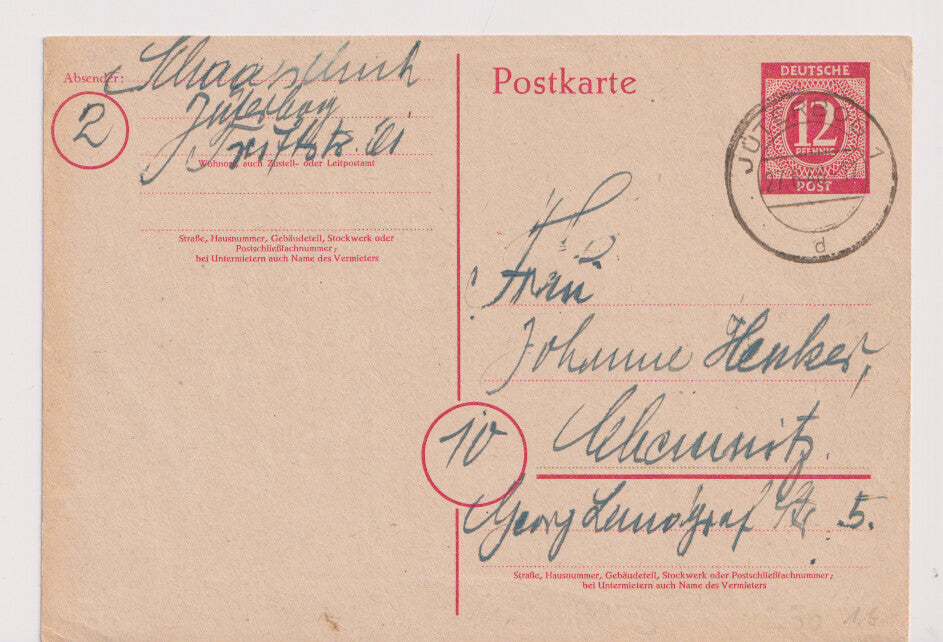 Absender:
2
Jüterbog
Wohnort, auch Zustell- oder Leitpostamt
Straße, Hausnummer, Gebäudeteil, Stockwerk oder
Postschließfachnummer;
bei Untermietern auch Name des Vermieters
Postkarte
DEUTSCHE
12
PFENNIG
POST
JÜTERBOG 1
d
Frau
Johanne Henker,
10
Chemnitz.
Georg Landgraf Str. 5.
Straße, Hausnummer, Gebäudeteil, Stockwerk oder Postschließfachnummer;
bei Untermietern auch Name des Vermieters